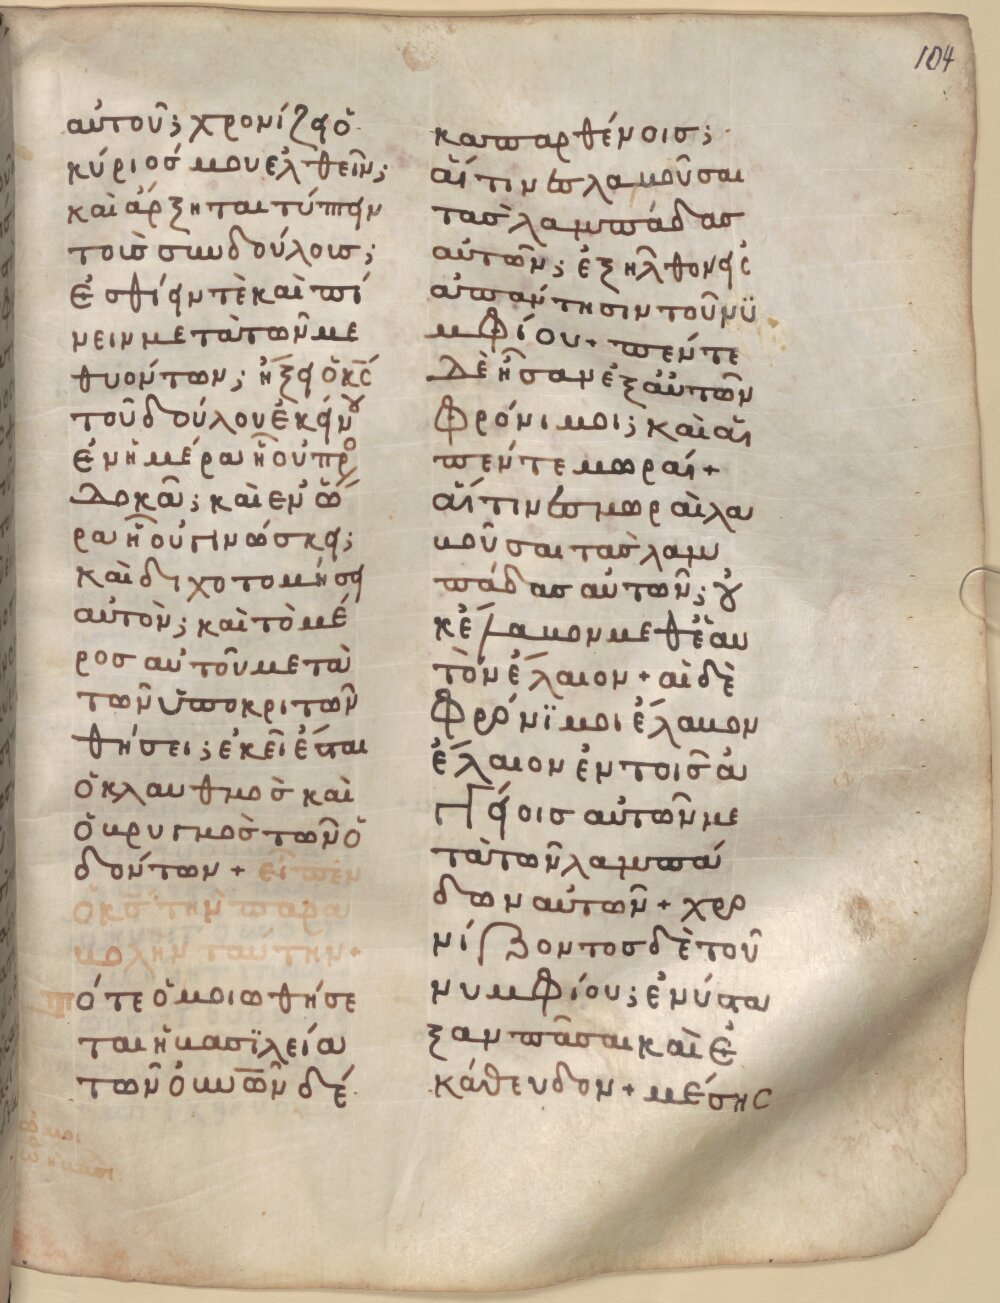 104
αὐτοῦ; χρονίζει ὁ
κύριόσ μου ἐλθεῖν;
καὶ ἄρξηται τύπτειν
τοὺσ συνδούλουσ;
ἐσθίειν τὲ καὶ πί
νειν μετὰ τῶν με
θυόντων; ἥξει ὁ κ̅ς̅
τοῦ δούλου ἐκείνου
ἐν ἡμέρα ἧ οὐ προ
σδοκᾶ; καὶ ἐν ὥ
ρα ἧ οὐ γινώσκει;
καὶ διχοτομήσει
αὐτὸν; καὶ τὸ μέ
ροσ αὐτοῦ μετὰ
τῶν ὑποκριτῶν
θήσει; ἐκεῖ ἔσται
ὁ κλαυθμὸσ καὶ
ὁ βρυγμὸσ τῶν ὀ
δόντων + εἶπεν
ὁ κσ τὴν παρα
βολὴν ταύτην+
ότε ὁμοιωθήσε
ται ἡ βασϊλεία
τῶν ὀυν̅ῶν δέ
κα παρθένοισ;
αἵτινεσ λαβοῦσαι
τασ λαμπάδασ
αὐτῶν; ἐξῆλθον εἰς
ἀπάντησιν τοῦ νϋ
μφίου + πέντε
δὲ ἦσαν ἐξ αὐτῶν
φρόνιμοι; καὶ αἱ
πέντε μωραί +
αἵτινεσ μωραὶ λα
βοῦσαι τασ λαμ
πάδασ αὐτῶν; οὐ
κ ἔλαβον μεθ ἑαυ
τὸν ἔλαιον + αἱ δὲ
φρόνϊμοι ἔλαβον
ἔλαιον ἐν τοισ ἀ
γγείοισ αὐτῶν με
τὰ τῶν λαμπά
δων αὐτῶν + χρο
νίζοντοσ δὲ τοῦ
νυμφίου; ἐνύστα
ξαν πᾶσαι καὶ ἐ
κάθευδον + μέσης